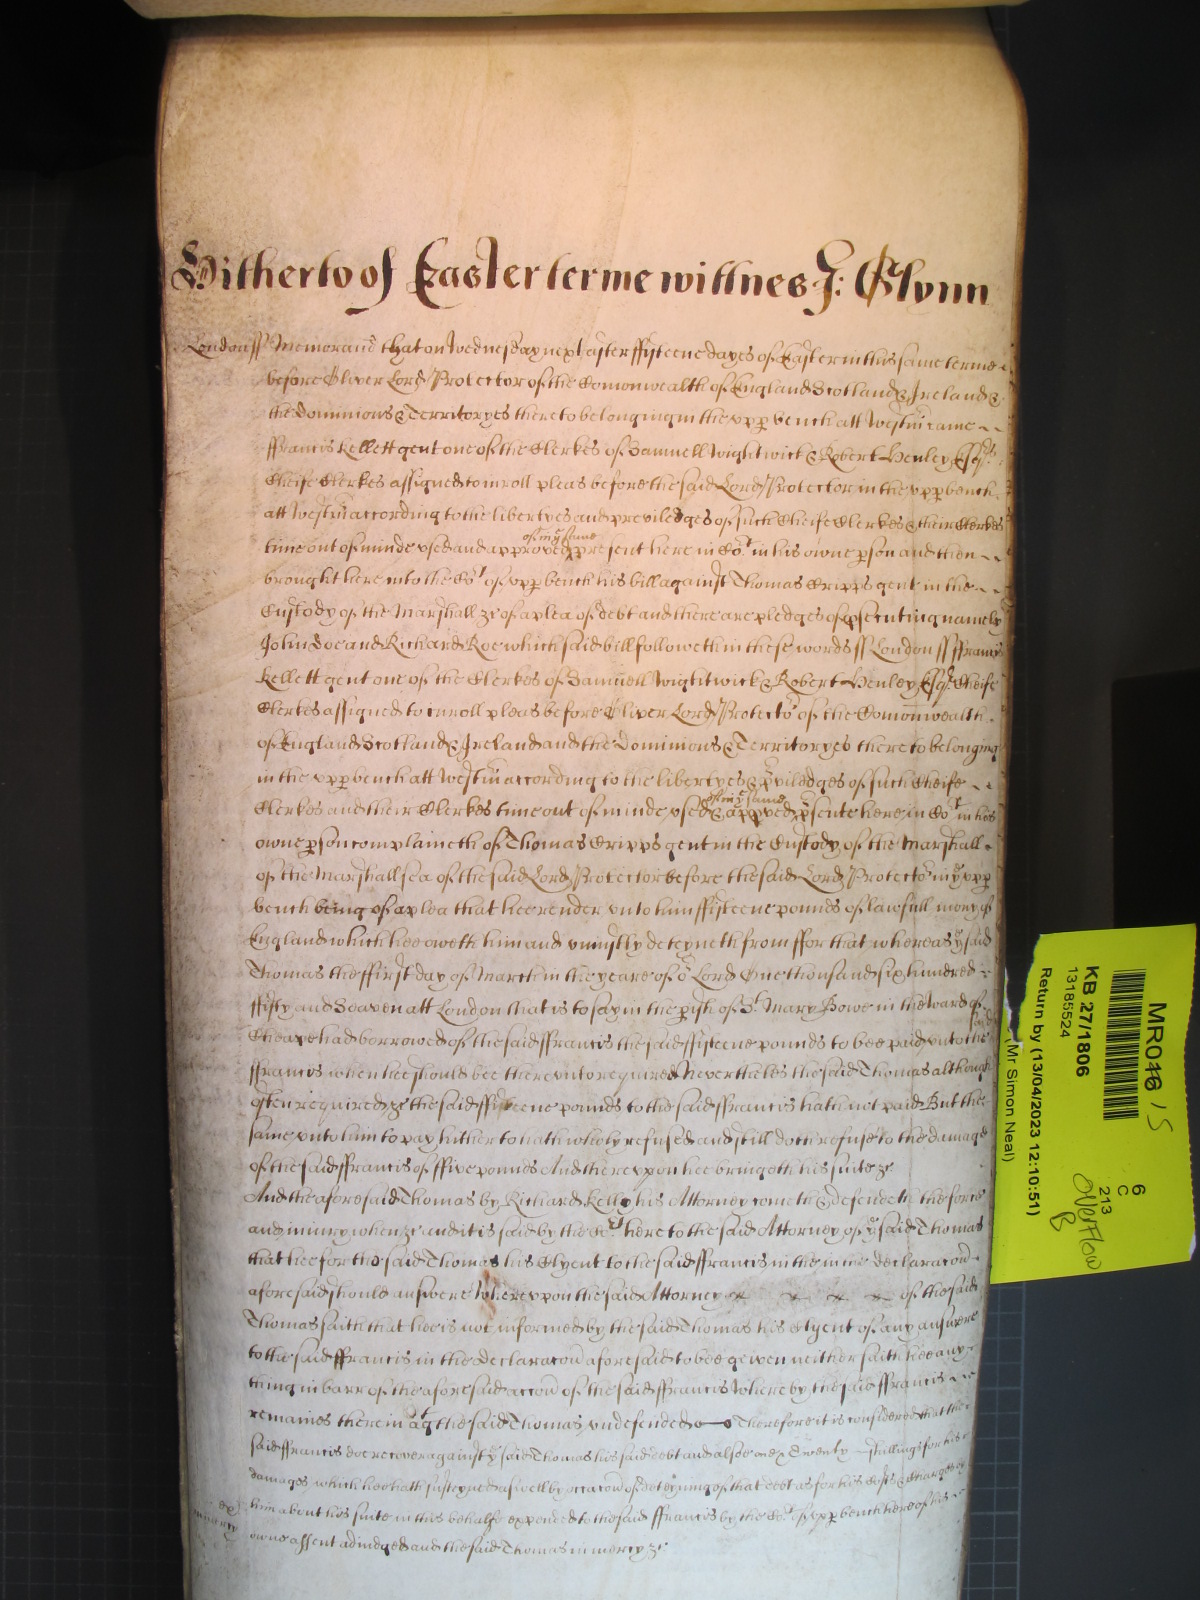 Hitherto of Easter terme wittnes J: Glynn
London ss Memorand that on Wednesday next after ffifteene dayes of Easter in this same terme
before Oliver Lord Protector of the Comonwealth of England Scotland & Ireland &
the Dominions & Territoryes thereto belonging in the upp bench att Westm came
ffrancis Kellett gent one of the Clerkes of Samuell Wightwick & Robert Henley Esqrs
Cheife Clerkes assigned to inroll pleas before the said Lord Protector in the upp bench
att Westm according to the libertyes and previledges of such Cheife Clerkes & their Clerkes
of in ye same
time out of minde used and approved present here in Cort in his owne pson and then
brought here into the Cort of upp bench his bill against Thomas Cripps gent in the
Custody of the Marshall &c of a plea of debt and there are pledges of psecuting namely
John Doe and Richard Roe which said bill followeth in these words ss London ss ffrancis
Kellett gent one of the Clerkes of Samuell Wightwick & Robert Henley Esqrs Cheife
Clerkes assigned to inroll pleas before Oliver Lord Protector of the Comonwealth
of England Scotland & Ireland and the Dominions & Territoryes thereto belonging
in the upp bench att Westm according to the libertyes & pviledges of such Cheife
of in ye same
Clerkes and their Clerkes time out of minde used & appved psente here in Cort in his
owne pson complaineth of Thomas Cripps gent in the Custody of the Marshall
of the Marshallsea of the said Lord Protector before the said Lord Protector in ye upp
bench being of a plea that hee render unto him ffifteene pounds of lawfull mony of
England which hee oweth him and uniustly deteyneth from ffor that whereas ye said
Thomas the ffirst day of March in the yeare of or Lord One thousand six hundred
ffifty and Seaven att London that is to say in the pish of St Mary Bowe in the ward of
said
Cheape had borrowed of the said ffrancis the said ffifteene pounds to bee paid unto the
ffrancis when hee should bee thereunto required Neverthelles the said Thomas although
often required &c the said ffifteene pounds to the said ffrancis hath not paid But the
same unto him to pay hitherto hath wholy refused and still doth refuse to the damage
of the said ffrancis of ffive pounds And thereupon hee bringeth his suite &c
And the aforesaid Thomas by Richard Kelly his Attorney cometh & defendeth the force
and iniury when &c and it is said by the Cort here to the said Attorney of ye said Thomas
that hee for the said Thomas his Clyent to the said ffrancis in the declaracon
aforesaid should answere Whereupon the said Attorney of the said
Thomas saith that hee is not informed by the said Thomas his Clyent of any answere
to the said ffrancis in the declaracon aforesaid to bee given neither saith hee any
thing in barr of the aforesaid accon of the said ffrancis Whereby the said ffrancis
remaines therein agt the said Thomas undefended Therefore it is considered that the
said ffrancis doe recover against ye said Thomas his said debt and alsoe Twenty shillings for his
damages which hee hath susteyned aswell by occacon of deteyning of that debt as for his costs & charges by
him about his suite in this behalfe expended to the said ffrancis by the Cort of upp bench here of his
owne assent adiudged and the said Thomas in mercy &c
mercy
MR048 15
KB 27/1806
13185524
Return by (13/04/2023 12:10:51)
(Mr Simon Neal)
6
C
213
Overflow
B